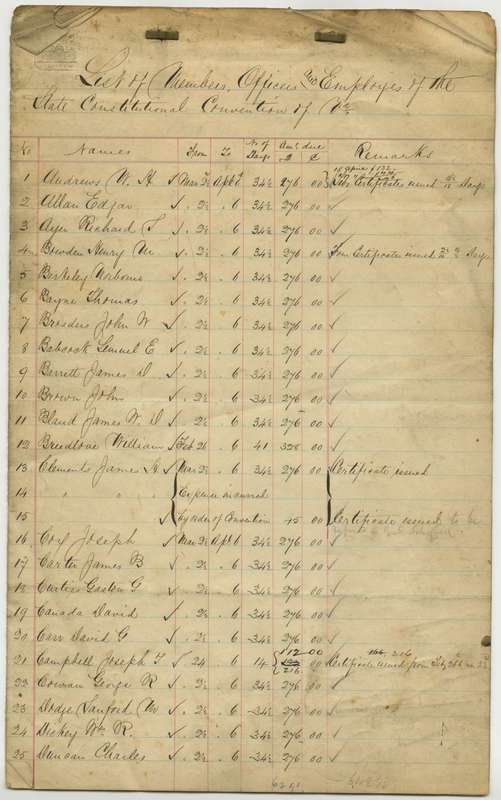 List of Members, Officers and Employes of the
State Constitutional Convention of Va
No Names From To No of Days Am't due $ ¢ Remarks
1 Andrews W. H ✓ Mar 2 Apl 6 34½ 276 00 Certificates issued Days
2 Allan Edgar ✓ . 2½ . 6 34½ 276 00 ✓
3 Ayer Richard S ✓ . 2½ . 6 34½ 276 00 ✓
4 Bowden Henry M ✓ . 2½ . 6 34½ 276 00 Two Certificates issued Days
5 Berkeley Norborne ✓ . 2½ . 6 34½ 276 00 ✓
6 Bayne Thomas ✓ . 2½ . 6 34½ 276 00 ✓
7 Broadus John W ✓ . 2½ . 6 34½ 276 00 ✓
8 Babcock Lemuel E ✓ . 2½ . 6 34½ 276 00 ✓
9 Barrett James D ✓ . 2½ . 6 34½ 276 00 ✓
10 Brown John ✓ . 2½ . 6 34½ 276 00 ✓
11 Bland James W. D ✓ . 2½ . 6 34½ 276 00 ✓
12 Breedlove William ✓ Feb 26 . 6 41 328 00 ✓
13 Clements James H ✓ Mar 2½ . 6 34½ 276 00 Certificate issued
14 " " " Expense incurred
15 ✓ by order of Convention 45 00 Certificate issued to be
16 Cox Joseph ✓ Mar 2½ Apl 6 34½ 276 00 ✓
17 Carter James B ✓ . 2½ . 6 34½ 276 00 ✓
18 Curtiss Gaston G ✓ . 2½ . 6 34½ 276 00 ✓
19 Canada David ✓ . 2½ . 6 34½ 276 00 ✓
20 Carr David G ✓ . 2½ . 6 34½ 276 00 ✓
21 Campbell Joseph T ✓ 24 . 6 14 112 00 216 00 Certificate issued from Feby 26
22 Cowan George R ✓ . 2½ . 6 34½ 276 00 ✓
23 Dodge Sanford M ✓ . 2½ . 6 34½ 276 00 ✓
24 Dickey Wm R. ✓ . 2½ . 6 34½ 276 00 ✓
25 Duncan Charles ✓ . 2½ . 6 34½ 276 00 ✓